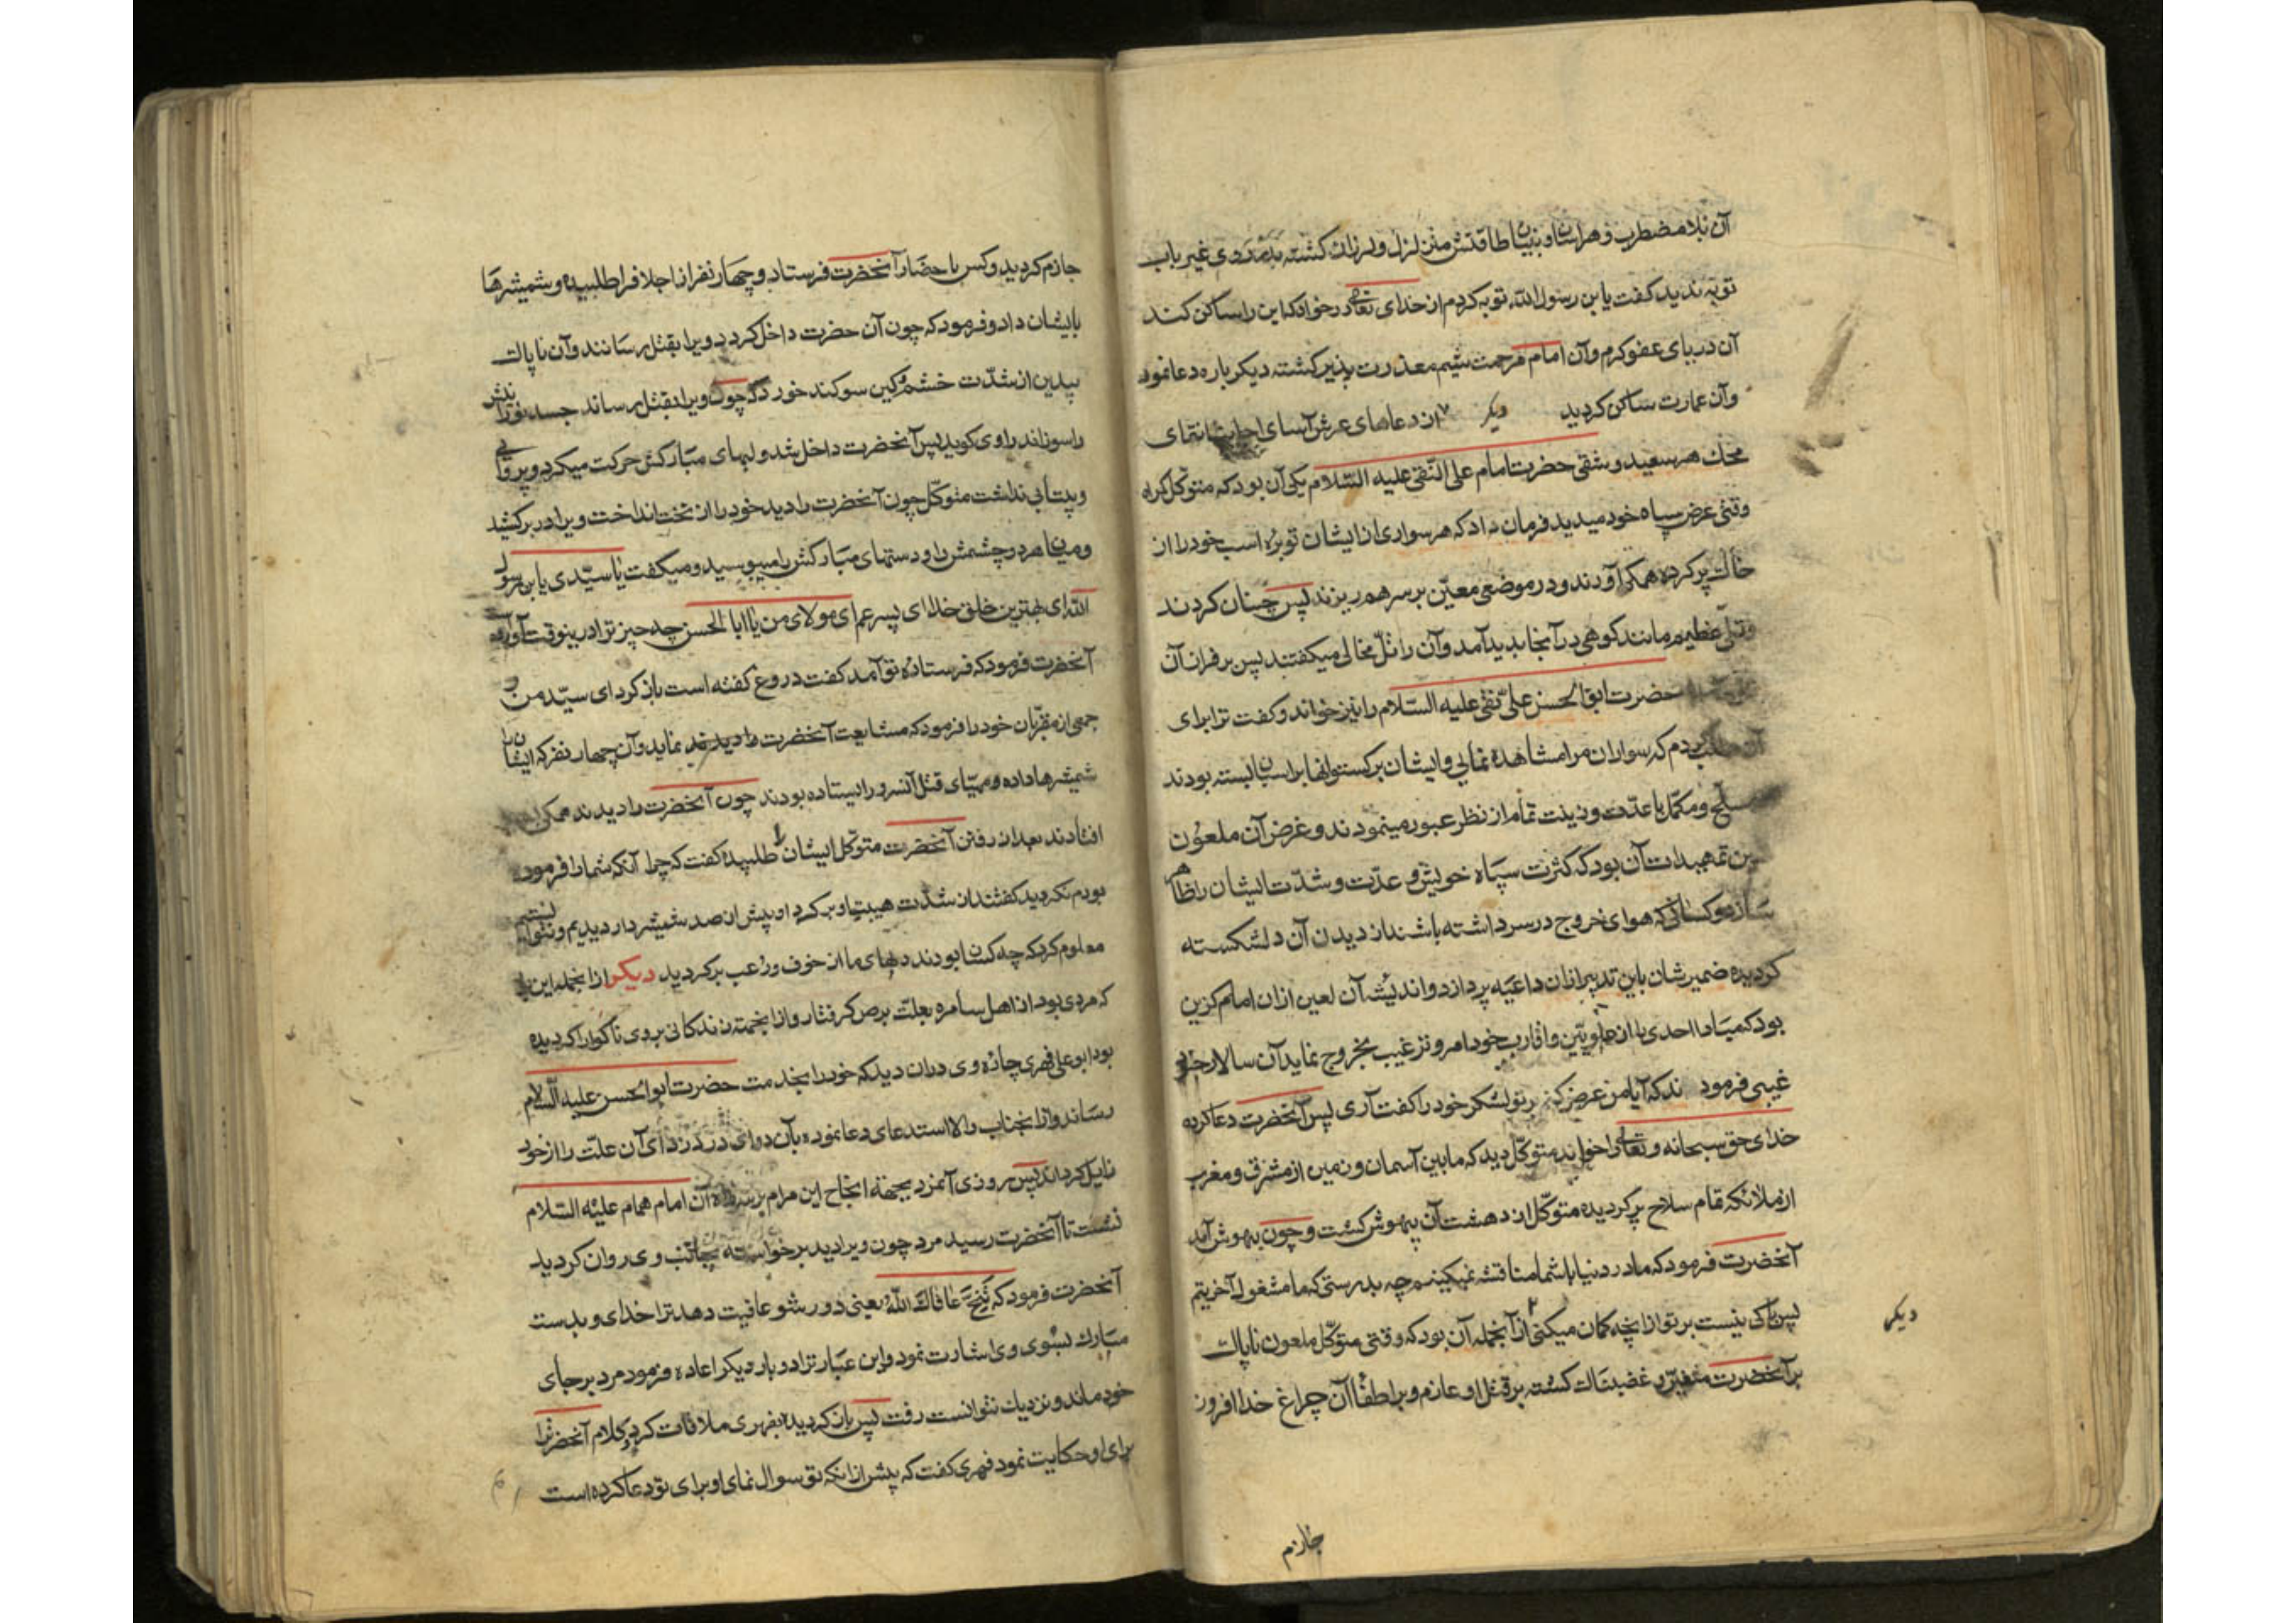 آن بلا مضطرب و هراسان و بنیان طاقتش متزلزل و لرزان کشته بدر روی غیر باب
توبه ندید کفت یابن رسول الله توبه کردم از خدای تعالی درخواه که این را ساکن کند
آن دریای عفو و کرم و آن امام مرحمت شیم معذرت پذیر کشته دیکر باره دعا نمود
و آن عمارت ساکن کردید دیکر از دعاهای عرش آسای اجابت انتمای
محک هر سعید و شقی حضرت امام علی النقی علیه السلام یکی آن بود که متوکل کراه
وقتی عرض سپاه خود میدید فرمان داد که هر سواری از ایشان توبره اسب خود را از
خاک پر کرده همکی آورند و در موضعی معین بر سر هم ریزند پس چنان کردند
و تلی عظیم مانند کوهی در آنجا پدید آمد و آن را تل مخالی میکفتند پس بر فراز آن
حضرت ابو الحسن علی نقی علیه السلام را نیز خواند و کفت ترا برای
آن طلب کردم که سواران مرا مشاهده نمایی و ایشان برکستوانها بر اسبان بسته بودند
مسلح و مکمل با عدت و زینت تمام از نظر عبور مینمودند و غرض آن ملعون
این تمهیدات آن بود که کثرت سپاه خویش و عدت و شدت ایشان را ظاهر
سازد و کسانی که هوای خروج در سر داشته باشند از دیدن آن دلشکسته
کردیده ضمیرشان باین تدبیر ازان داعیه پردازد و اندیشه آن لعین ازان امام کزین
بود که مبادا احدی را از علویین و اقارب خود امر و ترغیب بخروج نماید آن سالار جنود
غیبی فرمودند که آیا من عرض کنم بر تو لشکر خود را کفت آری پس آنحضرت دعا کرده
خدای حق سبحانه و تعالی را خواند متوکل دید که مابین آسمان و زمین از مشرق و مغرب
از ملائکه تمام سلاح پر کردیده متوکل از دهشت آن بیهوش کشت و چون بهوش آمد
آنحضرت فرمود که ما در دنیا با شما مناقشه نمیکنیم چه بدرستی که ما مشغول آخرتیم
پس باکی نیست بر تو از آنچه کمان میکنی از آنجمله آن بود که وقتی متوکل ملعون ناپاک
دیکر
بر آنحضرت متغیر و غضبناک کشته بر قتل او عازم و بر اطفاء آن چراغ خدا افروز
جازم
جازم کردید و کس باحضار آنحضرت فرستاد و چهار نفر از اجلاف را طلبیده و شمشیرها
بایشان داد و فرمود که چون آن حضرت داخل کردد ویرا بقتل رسانند و آن ناپاک
بیدین از شدت خشم و کین سوکند خورد که چون ویرا بقتل رساند جسد نورانیش
را سوزاند راوی کوید پس آنحضرت داخل شد و لبهای مبارکش حرکت میکرد و پروائی
و بیتابی نداشت متوکل چون آنحضرت را دید خود را از تخت انداخت ویرا در بر کشید
و میان هر دو چشمش را و دستهای مبارکش را میبوسید و میکفت یا سیدی یابن رسول
الله ای بهترین خلق خدا ای پسر عم ای مولای من یا ابا الحسن چه چیز ترا درینوقت آورد
آنحضرت فرمود که فرستاده تو آمد کفت دروغ کفته است باز کرد ای سید من و
جمعی از مقربان خود را فرمود که مشایعت آنحضرت نماید و آن چهار نفر که ایشان را
شمشیرها داده و مهیای قتل آنسرور ایستاده بودند چون آنحضرت را دیدند همکی
افتادند بعد از رفتن آنحضرت متوکل ایشان را طلبیده کفت که چرا آنکه شما را فرموده
بودم نکردید کفتند از شدت هیبت او بر کرد او بیش از صد شمشیر دار دیدیم و نتوانستیم
معلوم کرد که چه کسان بودند دلهای ما از خوف و رعب پر کردید دیکر ازانجمله این بود
که مردی بود از اهل سامره بعلت برص کرفتار و ازانجهت زندکانی بر وی ناکوار کردیده
بود ابو علی فهری چاره وی دران دید که خود را بخدمت حضرت ابو الحسن علیه السلام
رساند و ازانجناب والا استدعای دعا نموده بآن دوای درد زدای آن علت را از خود
زایل کرداند پس روزی آنمرد بجهة انجاح این مرام بر سر راه آن امام همام علیه السلام
نشست تا آنحضرت رسید مرد چون ویرا دید برخواسته بجانب وی روان کردید
آنحضرت فرمود که تنح عافاک الله یعنی دور شو عافیت دهد ترا خدای و بدست
مبارک بسوی وی اشارت نمود و این عبارت را دو بار دیکر اعاده فرمود مرد بر جای
خود ماند و نزدیک نتوانست رفت پس باز کردیده بفهری ملاقات کرد و کلام آنحضرت را
برای او حکایت نمود فهری کفت که پیش ازانکه تو سوال نمای او برای تو دعا کرده است